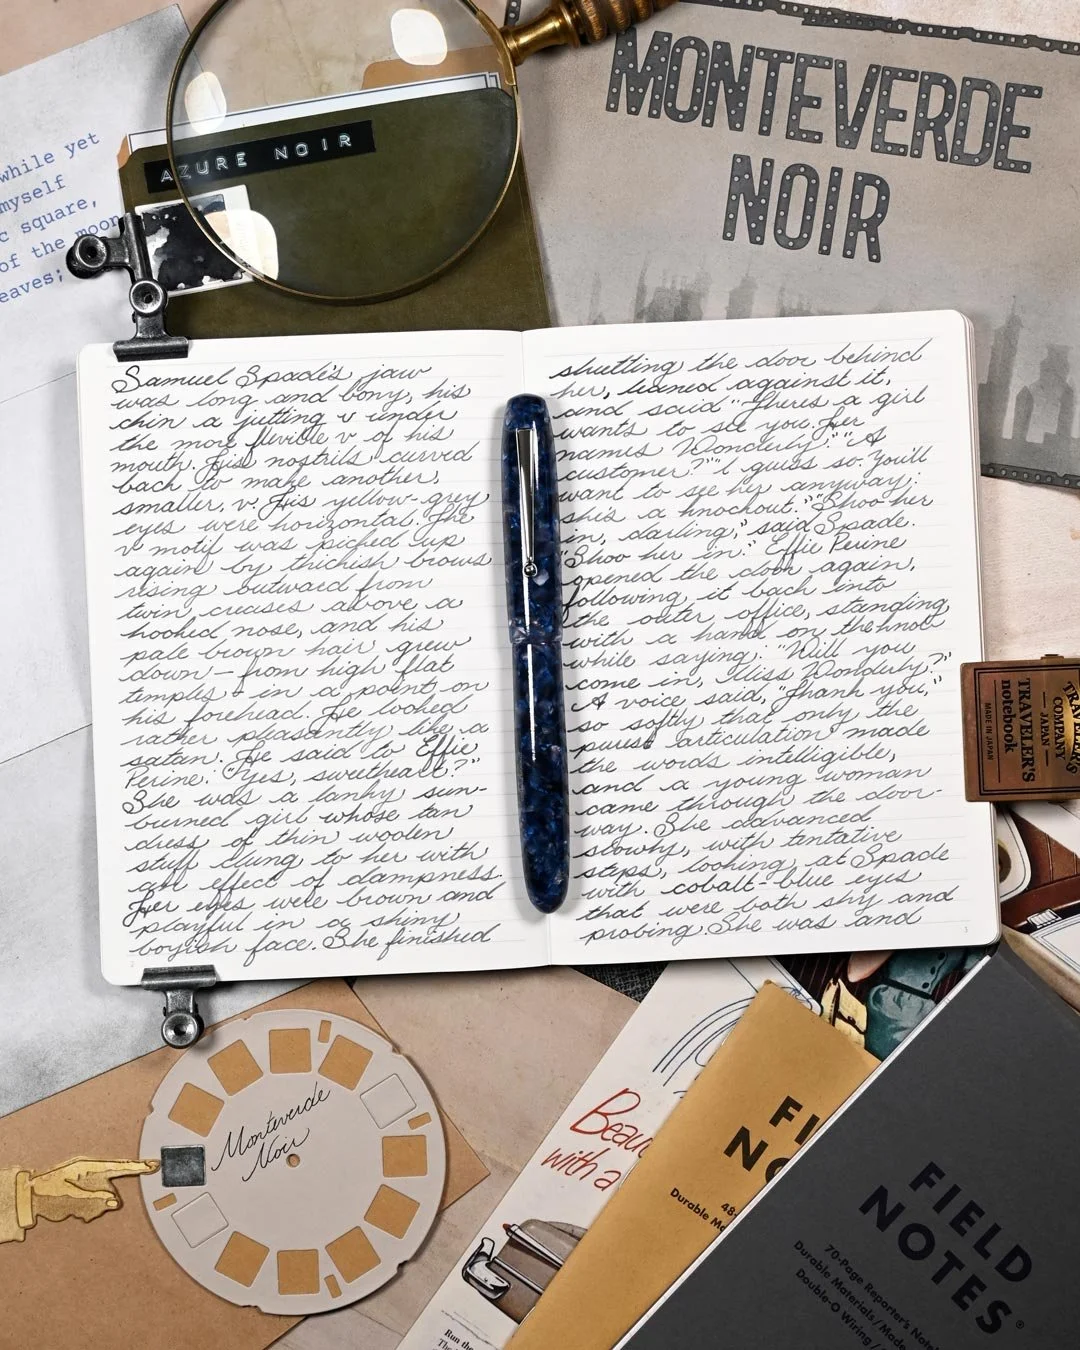 while yet
myself
c square,
of the moon
eaves;
AZURE NOIR
MONTEVERDE
NOIR
Samuel Spade's jaw
was long and bony, his
chin a jutting v under
the more flexible v of his
mouth. His nostrils curved
back to make another,
smaller, v. His yellow-grey
eyes were horizontal. The
v motif was picked up
again by thickish brows
rising outward from
twin creases above a
hooked nose, and his
pale brown hair grew
down—from high flat
temples—in a point on
his forehead. He looked
rather pleasantly like a
satan. He said to Effie
Perine: "Yes, sweetheart?"
She was a lanky sun-
burned girl whose tan
dress of thin woolen
stuff clung to her with
an effect of dampness.
Her eyes were brown and
playful in a shiny
boyish face. She finished
shutting the door behind
her, leaned against it,
and said "Theres a girl
wants to see you. Her
names Wonderly." "A
customer?" "I guess so. You'll
want to see her anyway:
she's a knockout." "Shoo her
in, darling," said Spade.
"Shoo her in." Effie Perine
opened the door again,
following it back into
the outer office, standing
with a hand on the knob
while saying: "Will you
come in, Miss Wonderly?"
A voice said, "Thank you,"
so softly that only the
purest articulation made
the words intelligible,
and a young woman
came through the door-
way. She advanced
slowly, with tentative
steps, looking at Spade
with cobalt-blue eyes
that were both shy and
probing. She was and
TRAVELER'S
COMPANY
JAPAN
TRAVELER'S
notebook
MADE IN JAPAN
Monteverde
Noir
Beau
with a
Run the
FI
NO
48-
Durable Ma
FIELD
NOTES®
70-Page Reporter's Note
Durable Materials/Made
Double-O Wiring/